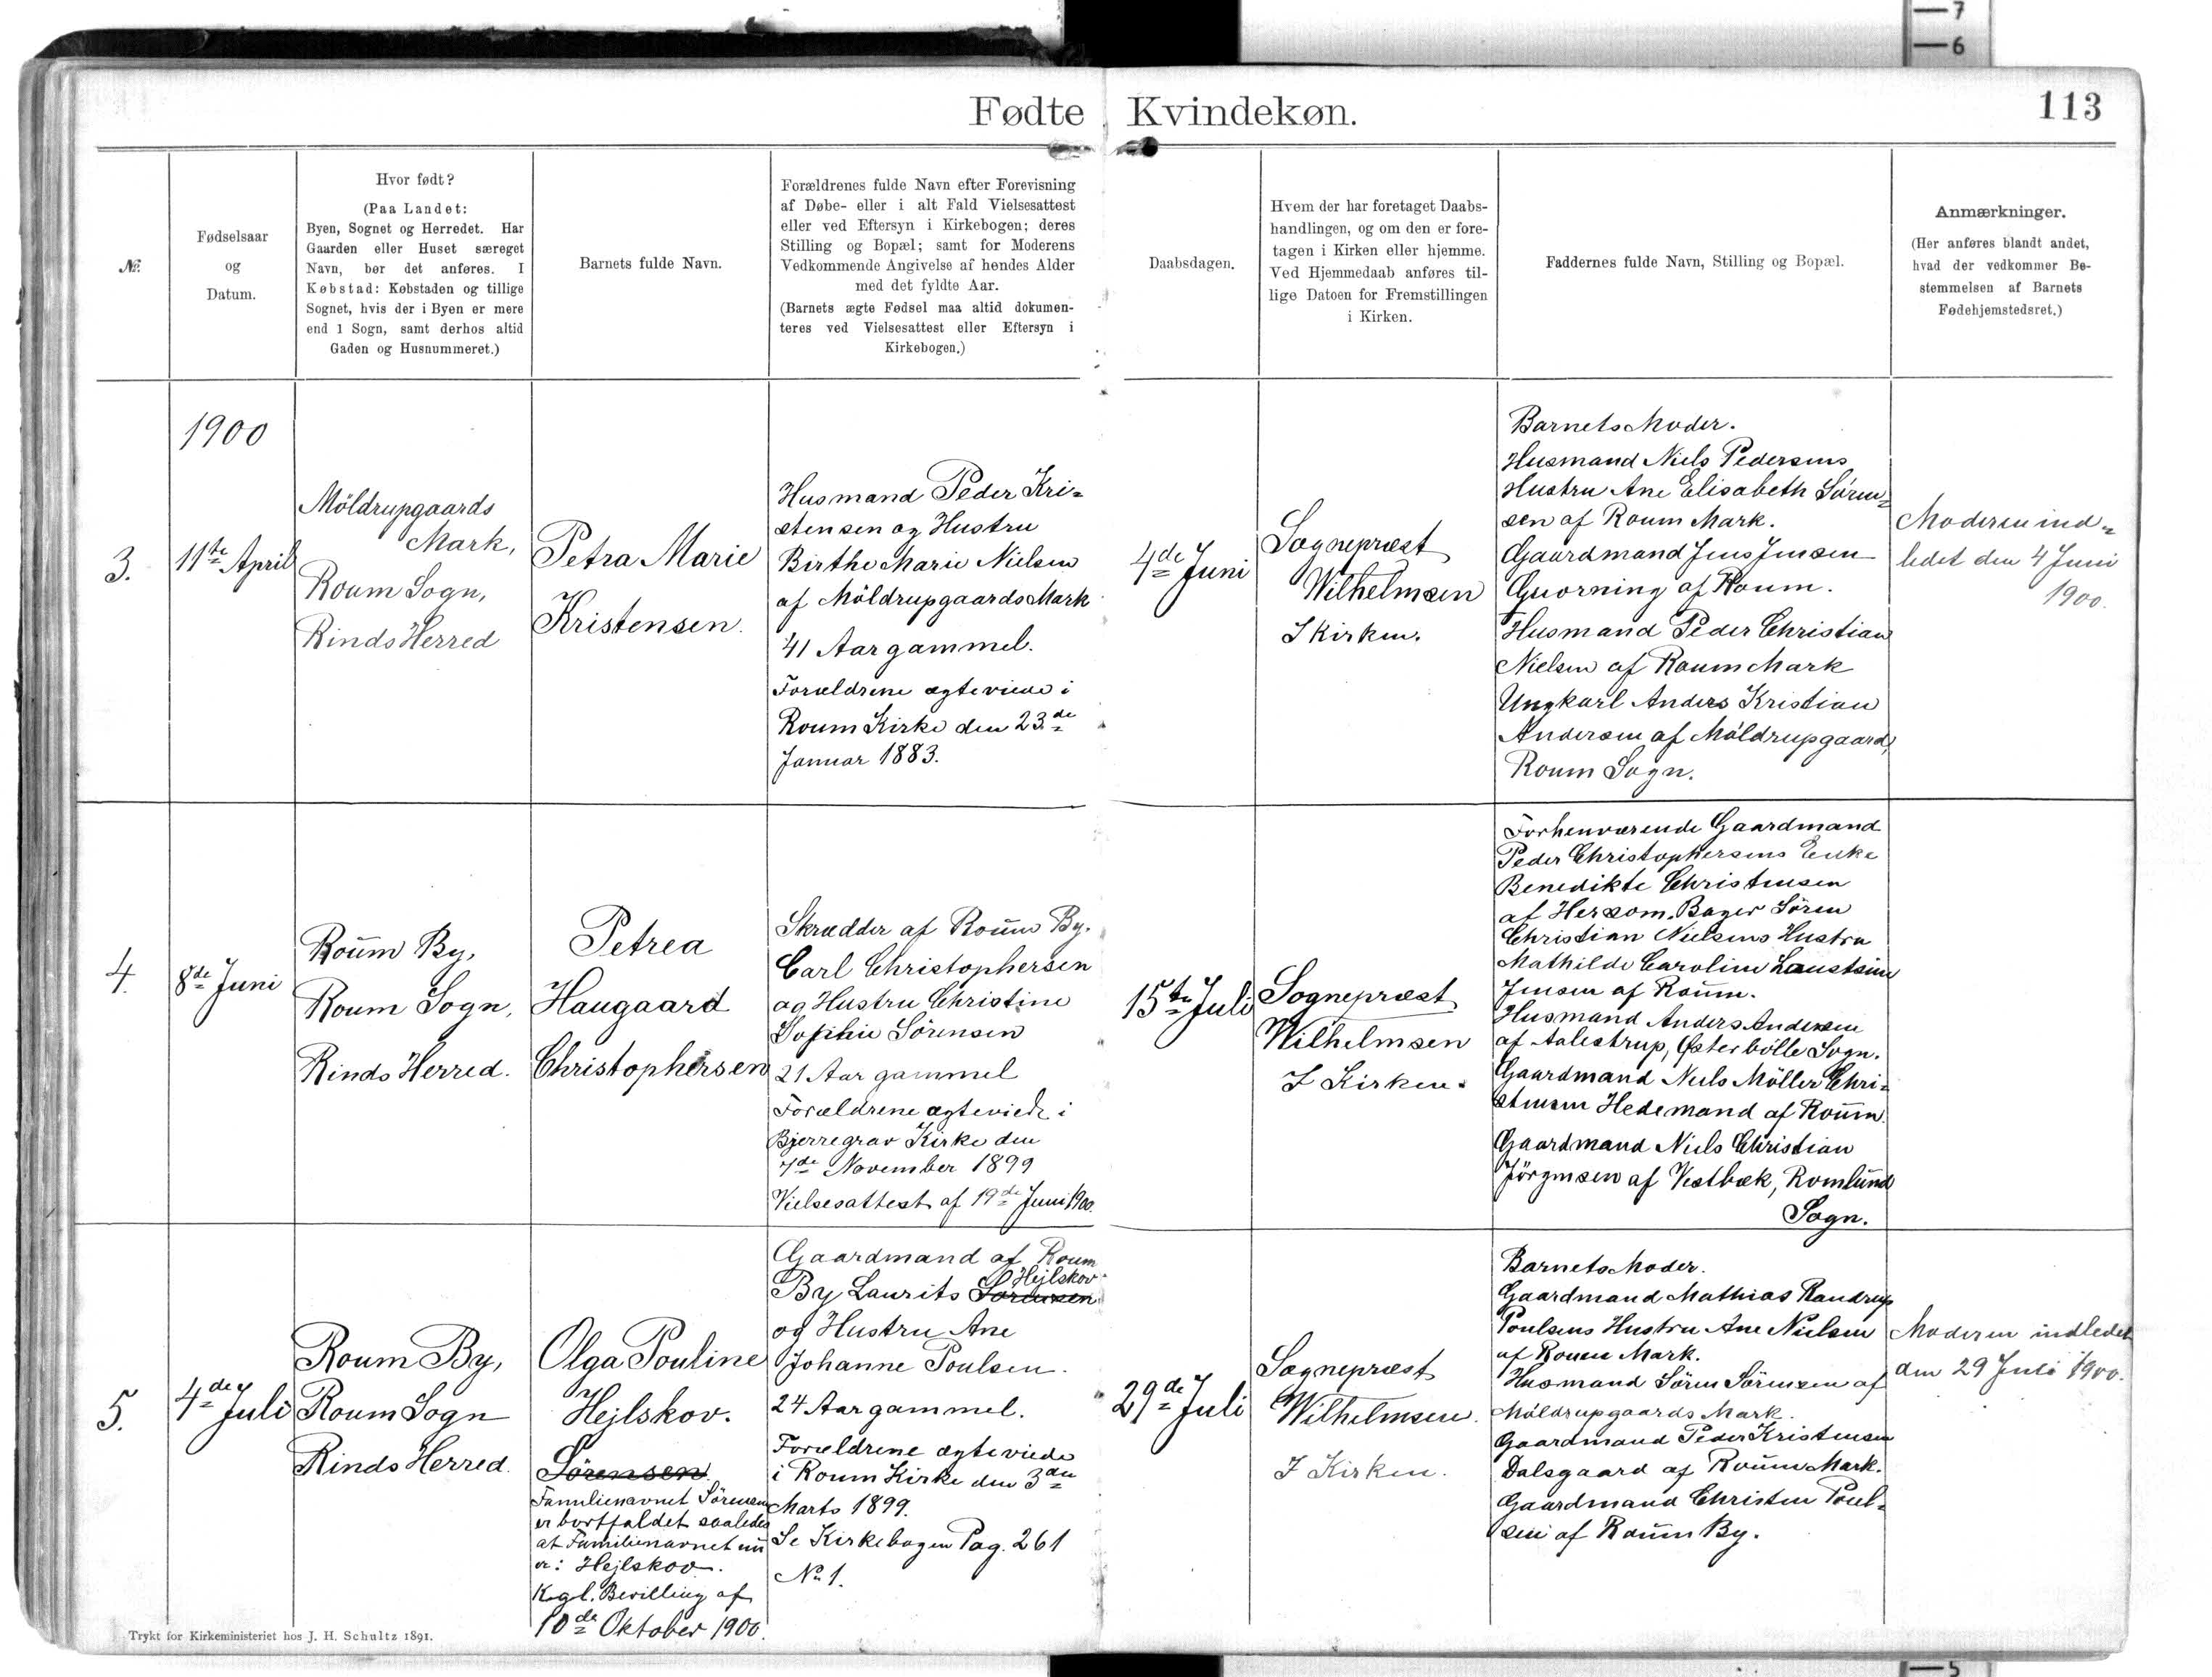 7
6
Fødte Kvindekøn.
113
№.
Fødselsaar
og
Datum.
Hvor født?
(Paa Landet:
Byen, Sognet og Herredet. Har
Gaarden eller Huset særeget
Navn, bør det anføres. I
Købstad: Købstaden og tillige
Sognet, hvis der i Byen er mere
end 1 Sogn, samt derhos altid
Gaden og Husnummeret.)
Barnets fulde Navn.
Forældrenes fulde Navn efter Forevisning
af Døbe- eller i alt Fald Vielsesattest
eller ved Eftersyn i Kirkebogen; deres
Stilling og Bopæl; samt for Moderens
Vedkommende Angivelse af hendes Alder
med det fyldte Aar.
(Barnets ægte Fødsel maa altid dokumen-
teres ved Vielsesattest eller Eftersyn i
Kirkebogen.)
Daabsdagen.
Hvem der har foretaget Daabs-
handlingen, og om den er fore-
tagen i Kirken eller hjemme.
Ved Hjemmedaab anføres til-
lige Datoen for Fremstillingen
i Kirken.
Faddernes fulde Navn, Stilling og Bopæl.
Anmærkninger.
(Her anføres blandt andet,
hvad der vedkommer Be-
stemmelsen af Barnets
Fødehjemstedsret.)
3.
1900
11te April
Möldrupgaards
Mark,
Roum Sogn,
Rinds Herred
Petra Marie
Kristensen.
Husmand Peder Kri=
stensen og Hustru
Birthe Marie Nielsen
af Möldrupgaards Mark
41 Aar gammel.
Forældrene ægteviede i
Roum Kirke den 23de
Januar 1883.
4de Juni
Sognepræst
Wilhelmsen
I Kirken.
Barnets Moder.
Husmand Niels Pedersens
Hustru Ane Elisabeth Sören=
sen af Roum Mark.
Gaardmand Jens Jensen
Quorning af Roum.
Husmand Peder Christian
Nielsen af Roum Mark
Ungkarl Anders Kristian
Andersen af Möldrupgaard,
Roum Sogn.
Moderen ind=
ledet den 4 Juni
1900.
4.
8de Juni
Roum By,
Roum Sogn,
Rinds Herred.
Petrea
Haugaard
Christophersen
Skrædder af Roum By.
Carl Christophersen
og Hustru Christine
Sophie Sörensen
21 Aar gammel
Forældrene ægteviede i
Bjerregrav Kirke den
7de November 1899
Vielsesattest af 19de Juni 1900.
15te Juli
Sognepræst
Wilhelmsen
I Kirken.
Forhenværende Gaardmand
Peder Christophersens Enke
Benedikte Christensen
af Hersom. Bager Sören
Christian Nielsens Hustru
Mathilde Caroline Laustsine
Jensen af Roum.
Husmand Anders Andersen
af Aalestrup, Østerbölle Sogn.
Gaardmand Niels Möller Chri=
stensen Hedemand af Roum.
Gaardmand Niels Christian
Jörgensen af Vestbæk, Romlund
Sogn.
5.
4de Juli
Roum By,
Roum Sogn
Rinds Herred.
Olga Pouline
Hejlskov.
Sörensen.
Familienavnet Sörensen
er bortfaldet saaledes
at Familienavnet nu
er: Hejlskov.
Kgl. Bevilling af
10de Oktober 1900.
Gaardmand af Roum
Hejlskov
By Laurits Sörensen
og Hustru Ane
Johanne Poulsen.
24 Aar gammel.
Forældrene ægteviede
i Roum Kirke den 3die
Marts 1899.
Se Kirkebogen Pag. 261
No 1.
29de Juli
Sognepræst
Wilhelmsen.
I Kirken.
Barnets Moder.
Gaardmand Mathias Randrup
Poulsens Hustru Ane Nielsen
af Roum Mark.
Husmand Sören Sörensen af
Möldrupgaards Mark.
Gaardmand Peder Kristensen
Dalsgaard af Roum Mark.
Gaardmand Christen Poul=
sen af Roum By.
Moderen indledet
den 29 Juli 1900.
Trykt for Kirkeministeriet hos J. H. Schultz 1891.
5